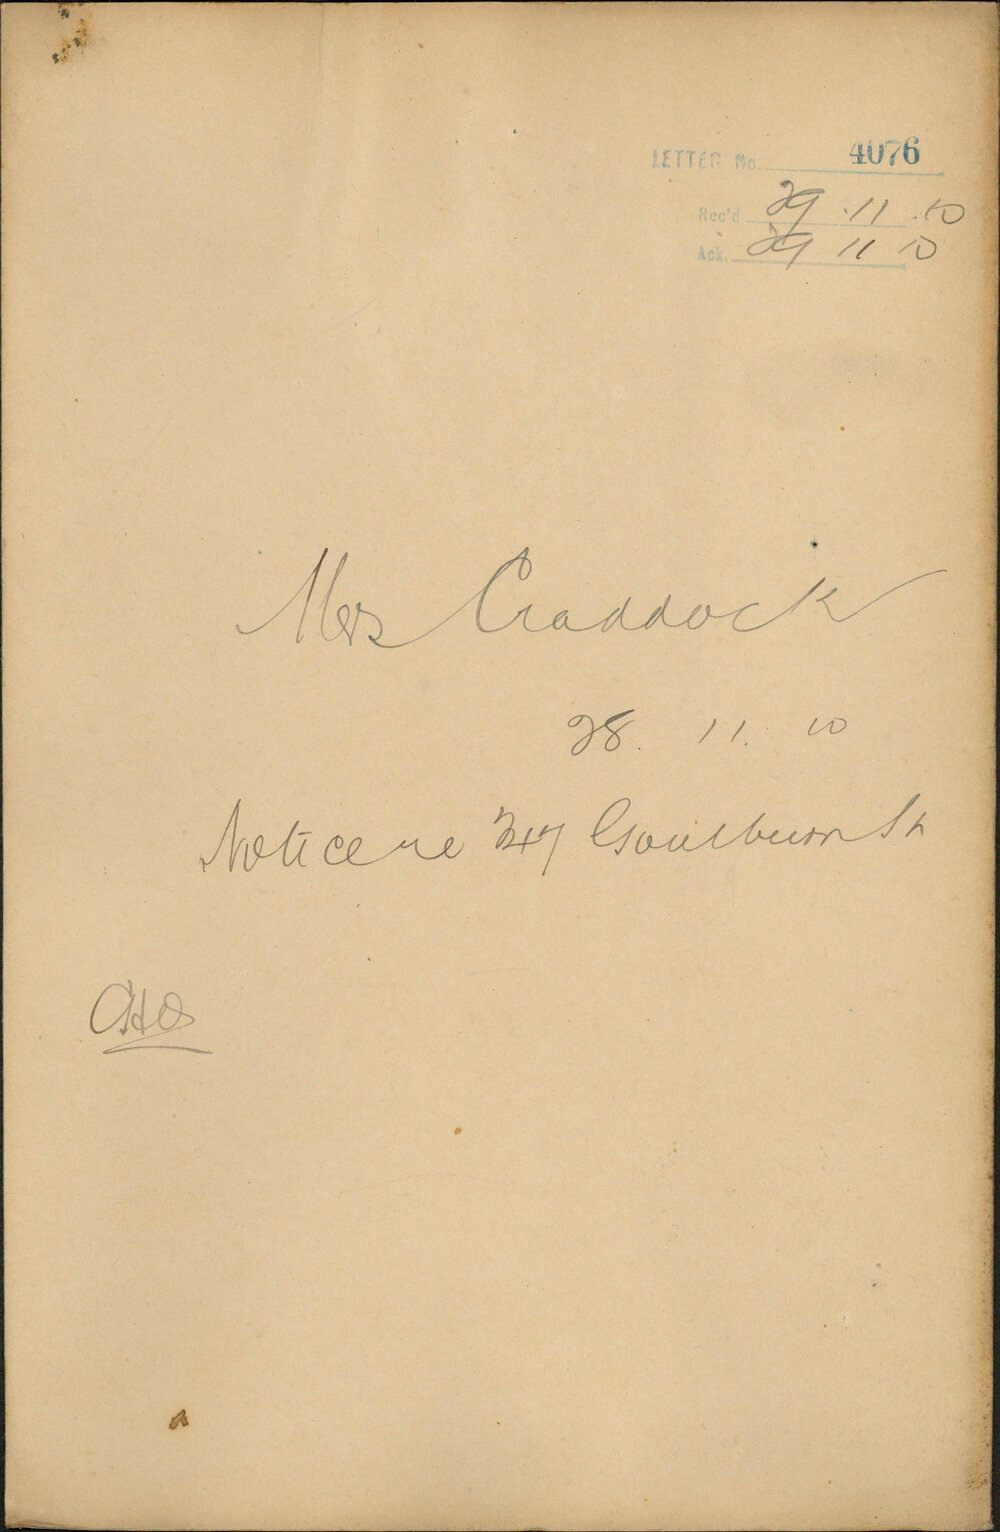 LETTER No. 4076
Rec'd 29.11.10
Ack. 29 11 10
Mrs Craddock
28. 11. 10
Notice re 247 Goulburn St
CHO